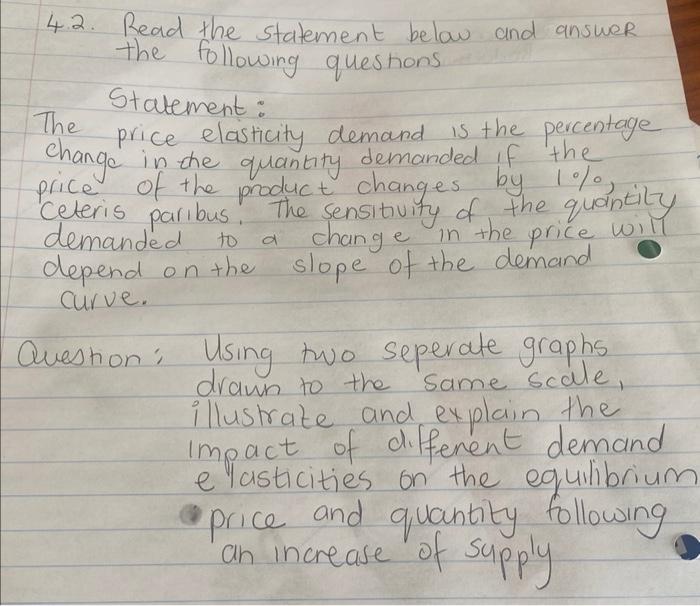 4.2. Read the statement below and answer
the following questions
Statement:
The price elasticity demand is the percentage
change in the quantity demanded if the
price of the product changes by 1%,
ceteris paribus. The sensitivity of the quantity
demanded to a change in the price will
depend on the slope of the demand
curve.
Question: Using two seperate graphs
drawn to the same scale,
illustrate and explain the
impact of different demand
elasticities on the equilibrium
price and quantity following
an increase of supply